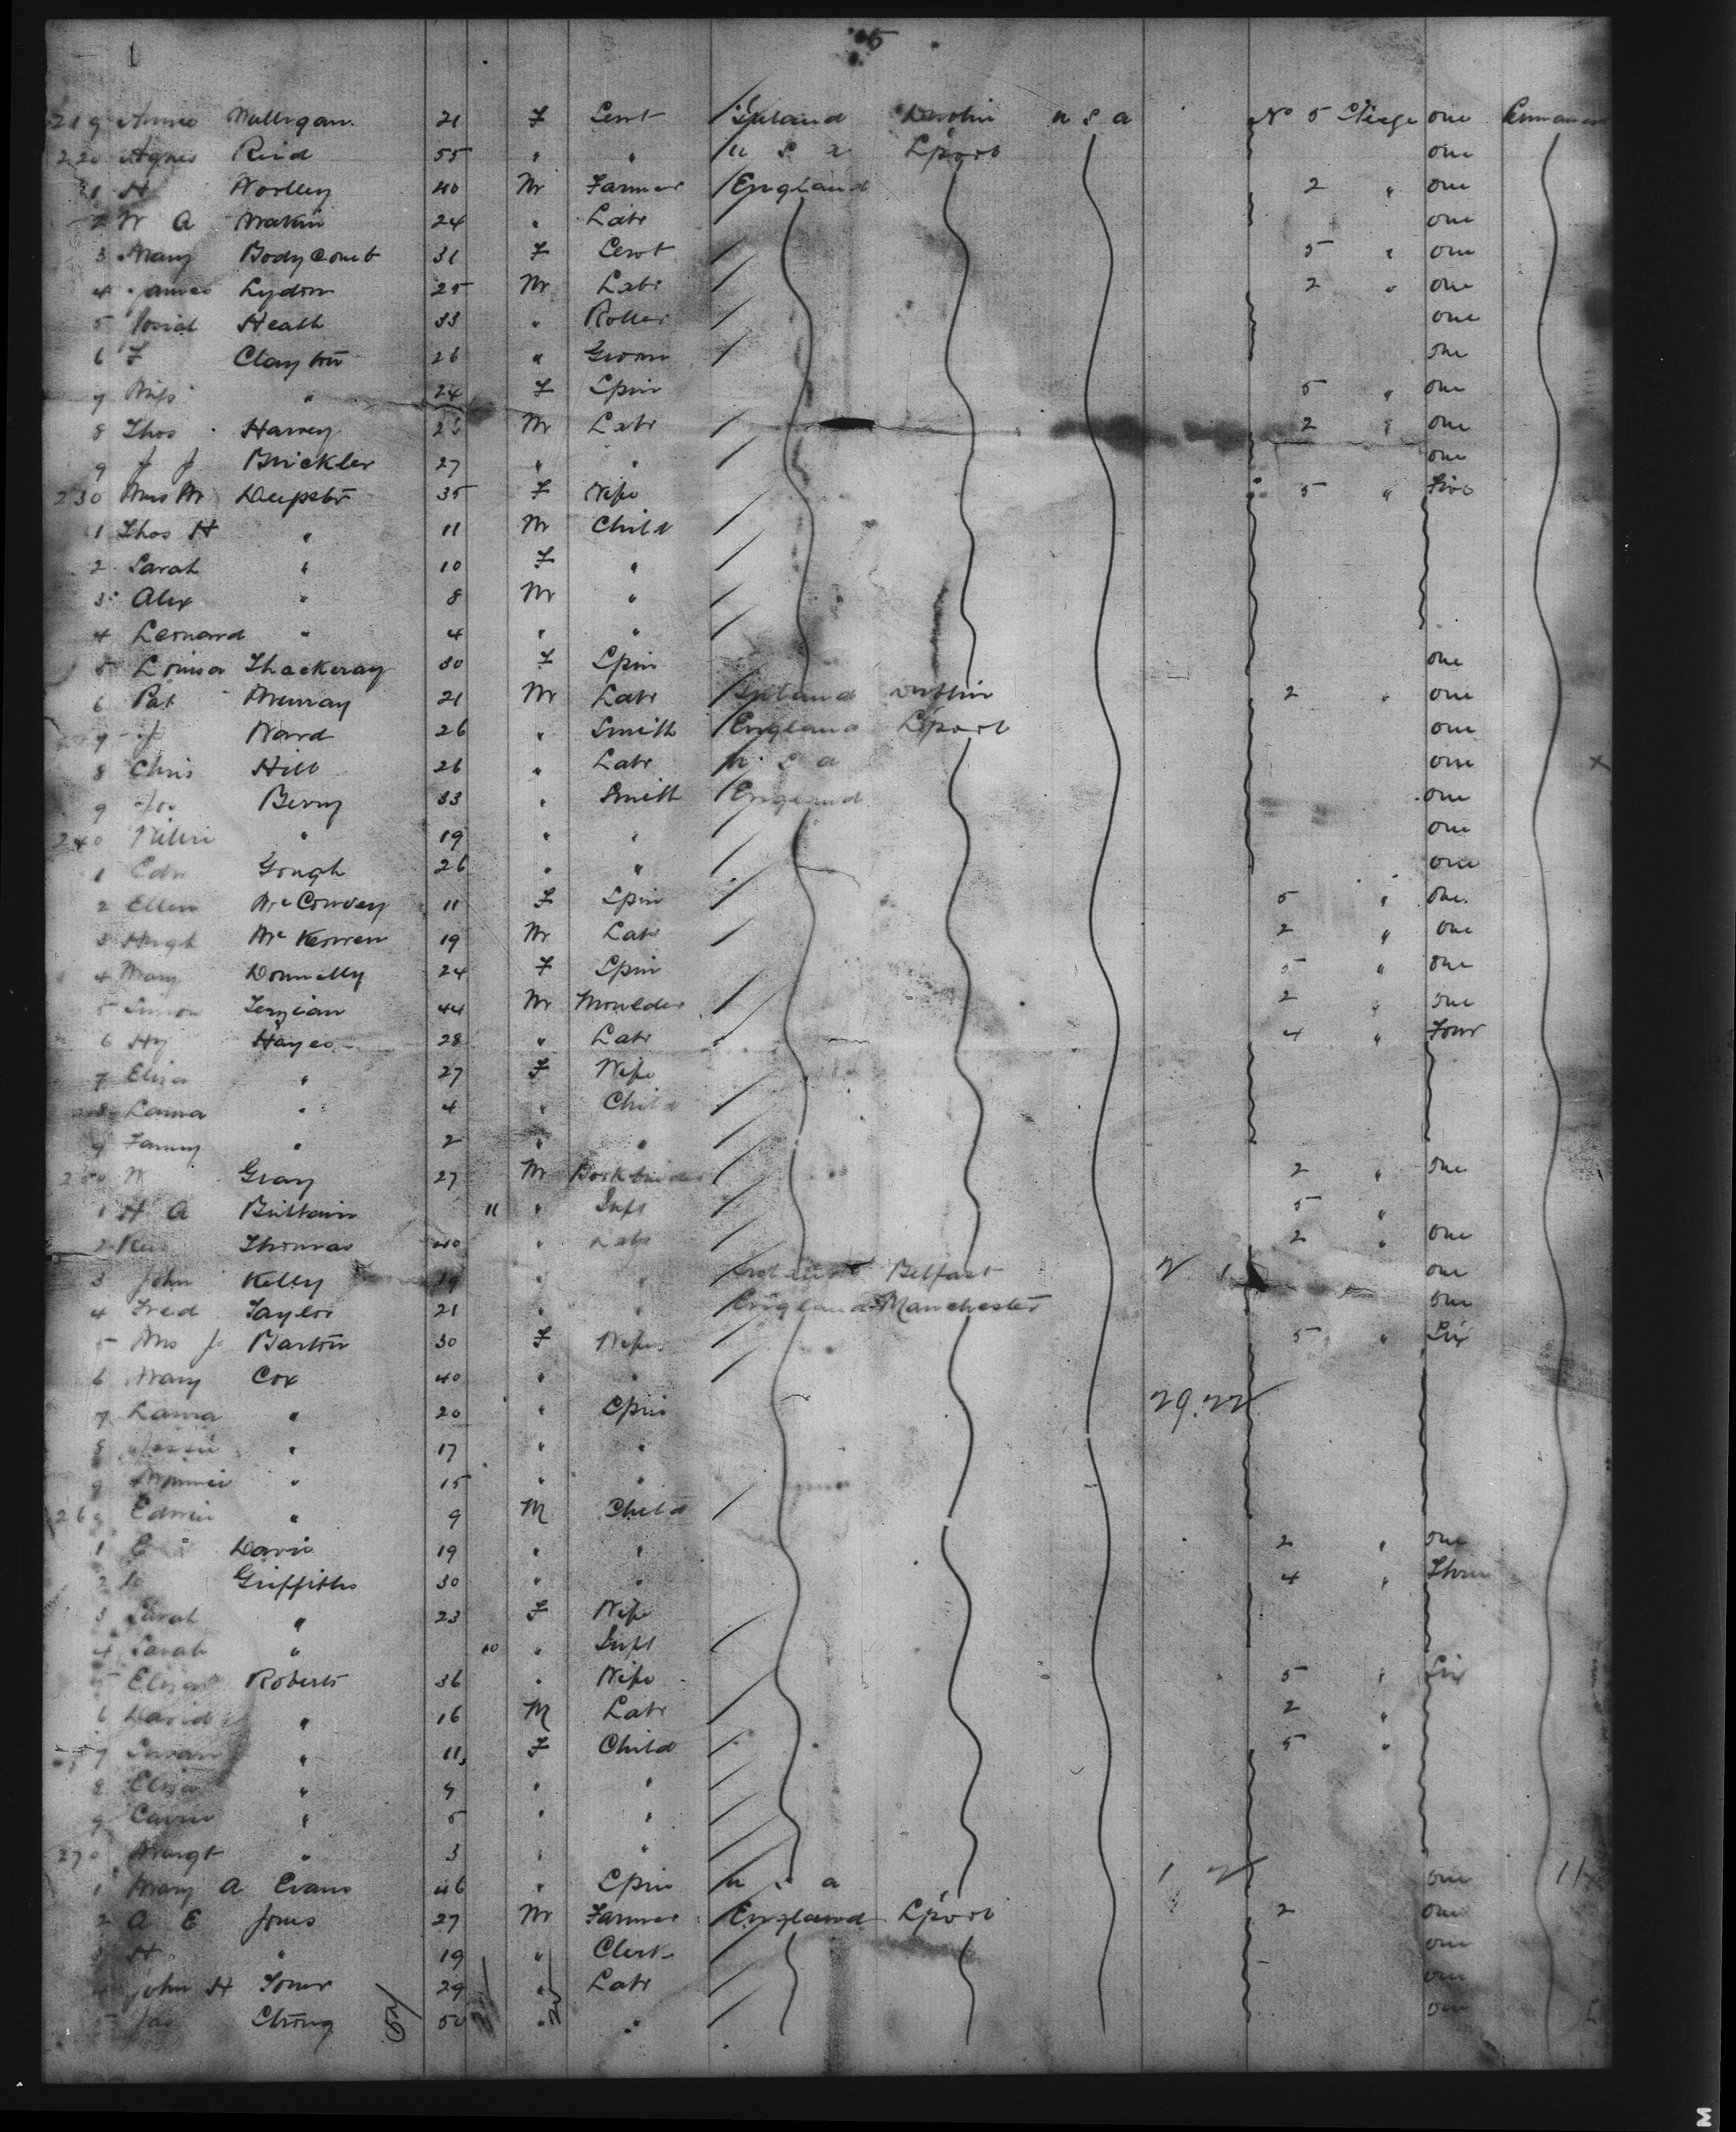 5
219 Annie Mulligan 21 F Servt Ireland Dublin U S A No 5 Stege one Permanent
220 Agnes Reid 55 " " U S A L'pool one
1 H Worlley 40 M Farmer England 2 " one
2 W A Makin 24 " Labr one
3 Mary Bodycomb 31 F Servt 5 " one
4 James Lydon 25 M Labr 2 " one
5 Josiah Heath 33 " Roller one
6 F Clayton 26 " Groom one
7 Miss " 24 F Spin 5 " one
8 Thos Harvey 23 M Labr 2 " one
9 J J Brickler 27 " " one
230 Mrs M 35 F Wife 5 " Five
1 Thos H " 11 M Child
2 Sarah " 10 F "
3 Alex " 8 M "
4 Leonard " 4 " "
5 Louisa Thackeray 30 F Spin one
6 Pat Murray 21 M Labr Ireland Dublin 2 " one
7 J Ward 26 " Smith England L'pool one
8 Chris Hill 26 " Labr U S A one x
9 Jos Berry 33 " Smith England one
240 " 19 " " one
1 Edw Gough 26 " " one
2 Ellen McConvey 11 F Spin 5 " one
3 Hugh McKerven 19 M Labr 2 " one
4 Mary Donnelly 24 F Spin 5 " one
5 Simon Terzian 44 M Moulder 2 " one
6 Hy Hayes 28 " Labr 4 " Four
7 Eliza " 27 F Wife
8 Laura " 4 " Child
9 Fanny " 2 " "
250 W Gray 27 M Bookbinder 2 " one
1 H A Brittain 11 " Inft 5 "
2 Thomas 40 " Labr 2 " one
3 John Kelly 19 " " Ireland Belfast one
4 Fred Taylor 21 " " England Manchester one
5 Mrs J Barton 30 F Wife 5 " Six
6 Mary Cox 40 " "
7 Laura " 20 " Spin
8 Jessie " 17 " "
9 Minnie " 15 " "
260 Edwin " 9 M Child
1 E Davis 19 " " 2 " one
2 Griffiths 30 " " 4 " Three
3 Sarah " 23 F Wife
4 Sarah " 10 " Inft
5 Eliza Roberts 36 " Wife 5 " Six
6 David " 16 M Labr 2 "
7 Susan " 11 F Child 5 "
8 Eliza " 9 " "
9 Carrie " 5 " "
270 Margt " 3 " "
1 Mary A Evans 46 " Spin U S A one
2 A E Jones 27 M Farmer England L'pool 2 one
3 H " 19 " Clerk one
4 John H Toner 29 " Labr one
5 Jas Strong 50 " " one